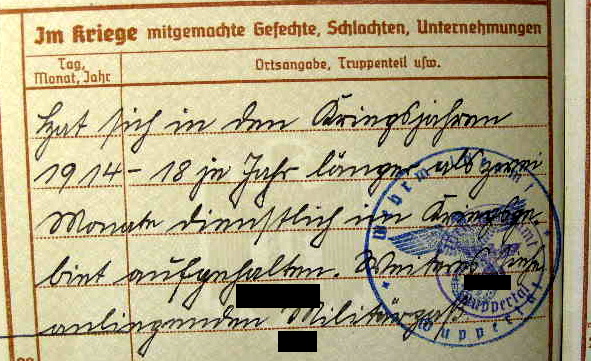 Im Kriege mitgemachte Gefechte, Schlachten, Unternehmungen
Tag, Monat, Jahr
Ortsangabe, Truppenteil usw.
Hat sich in den Kriegsjahren
1914-18 je Jahr länger als zwei
Monate dienstlich im Kriegsge-
biet aufgehalten. Weiteres siehe
anliegenden Militärpaß
Wuppertal
Wuppertal